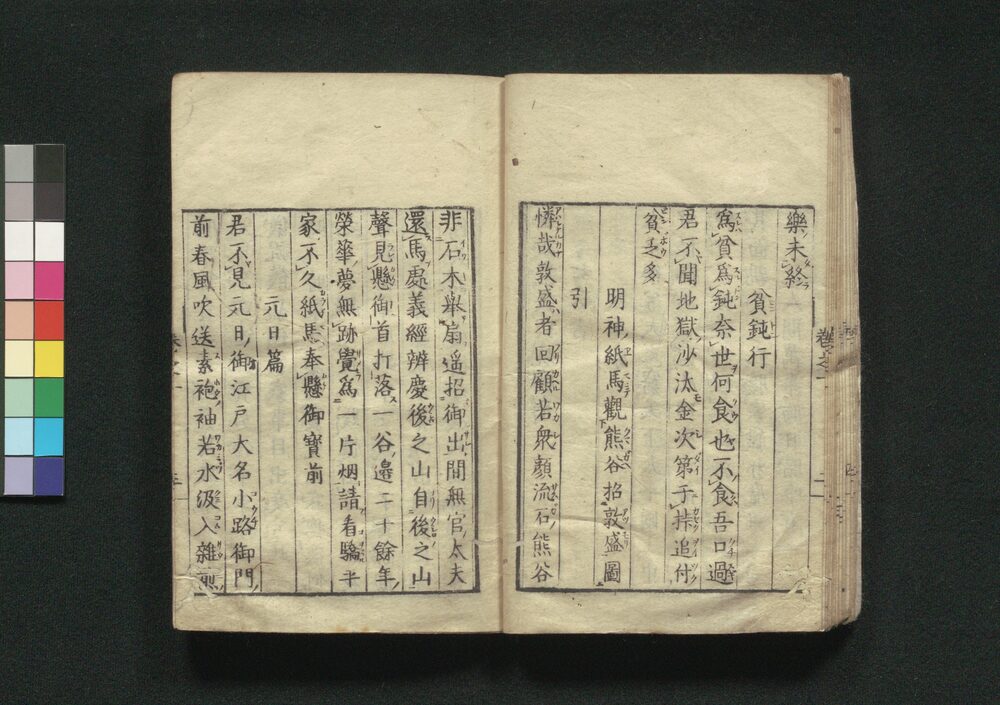 樂未終
貧鈍行
爲貧爲鈍奈世何食也不食吾口過
君不聞地獄沙汰金次第于挊追付
貧乏多
明神紙馬觀熊谷招敦盛圖
引
憐哉敦盛者回顧若衆顏流石熊谷
卷之一
二
非石木擧扇遥招御出間無官太夫
還馬處義經辨慶後之山自後之山
聲見懸御首打落一谷邉二十餘年
榮華夢無跡覺爲一片烟請看驕平
家不久紙馬奉懸御寳前
元日篇
君不見元日御江戸大名小路御門
前春風吹送素袍袖若水汲入雜煎